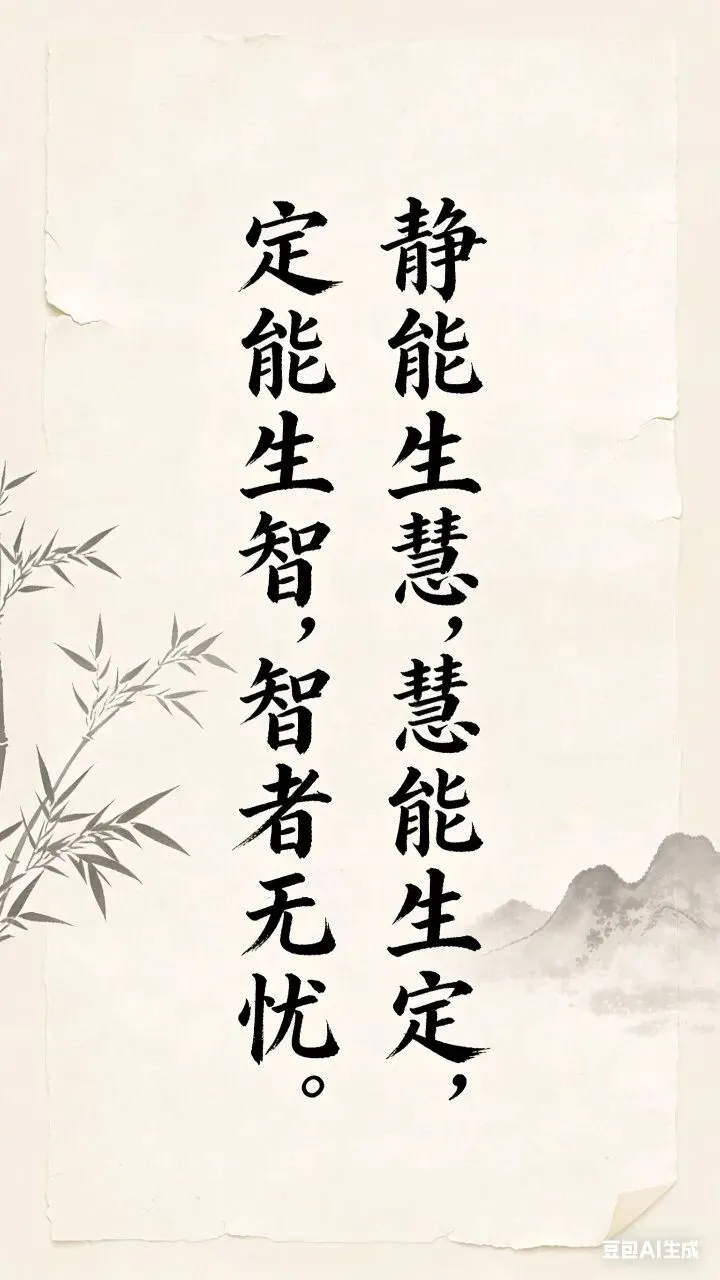 静能生慧,慧能生定,
定能生智,智者无忧。
豆包AI生成